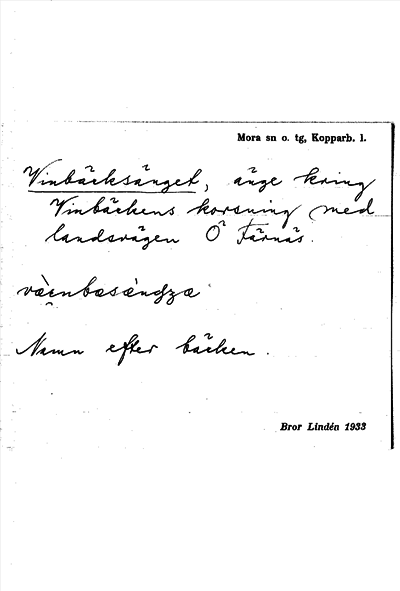 Mora sn o. tg, Kopparb. l.
Vinbäcksänget, änge kring
Vinbäckens korsning med
landsvägen Ö Färnäs.
Namn efter bäcken.
Bror Lindén 1933